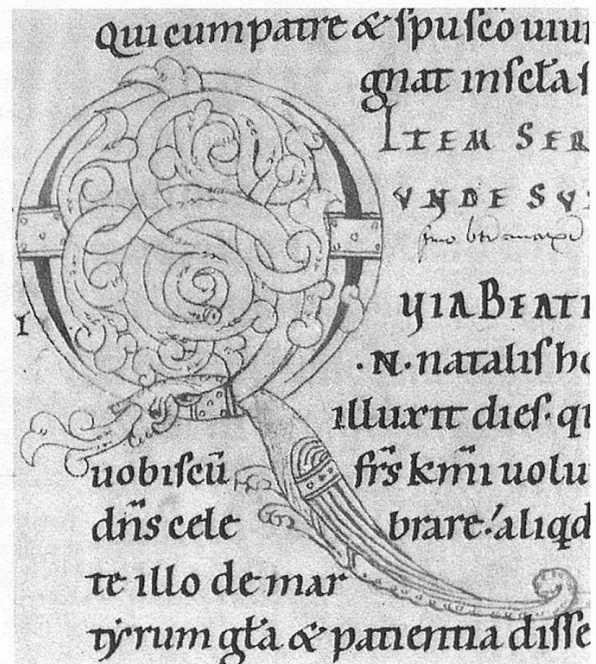 Qui cum patre & ſpu ſcō uiui
gnat in ſcła ſ
ITEM SER
VNDE SV
QUIA BEATI
·N· natalıſ ho
illuxit dieſ· qi
uobiſcū fr̄s km̄i uolu
dn̄s cele brare! aliqd
te illo de mar
tẏrum gła & patientia diſſe